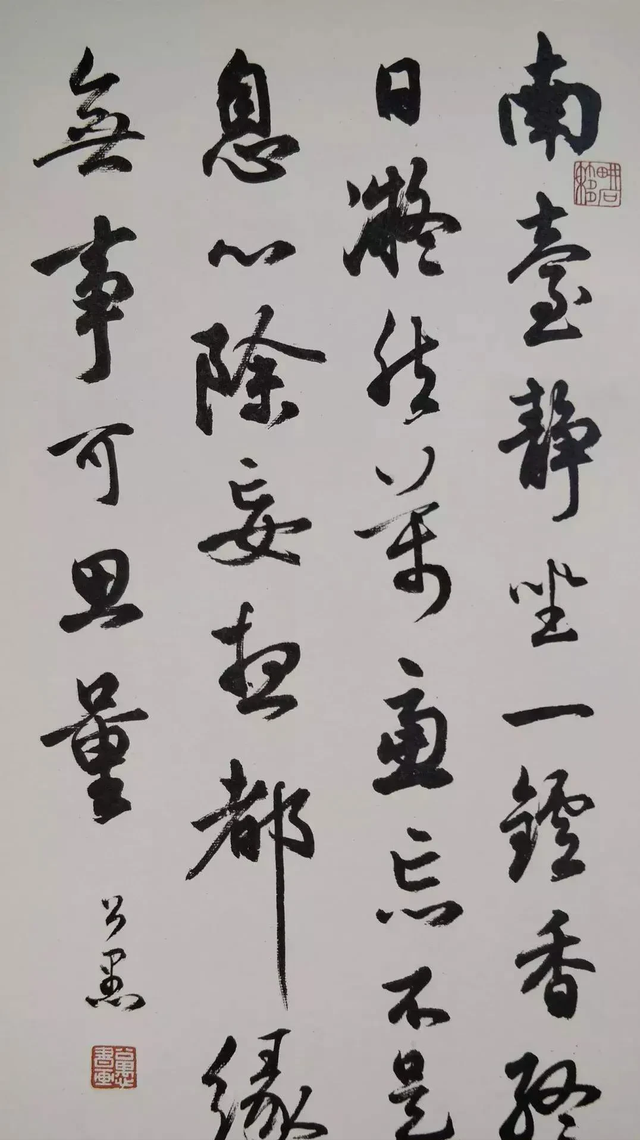 南臺靜坐一鑪香終
日凝然萬慮忘不是
息心除妄想都緣
無事可思量
公愚